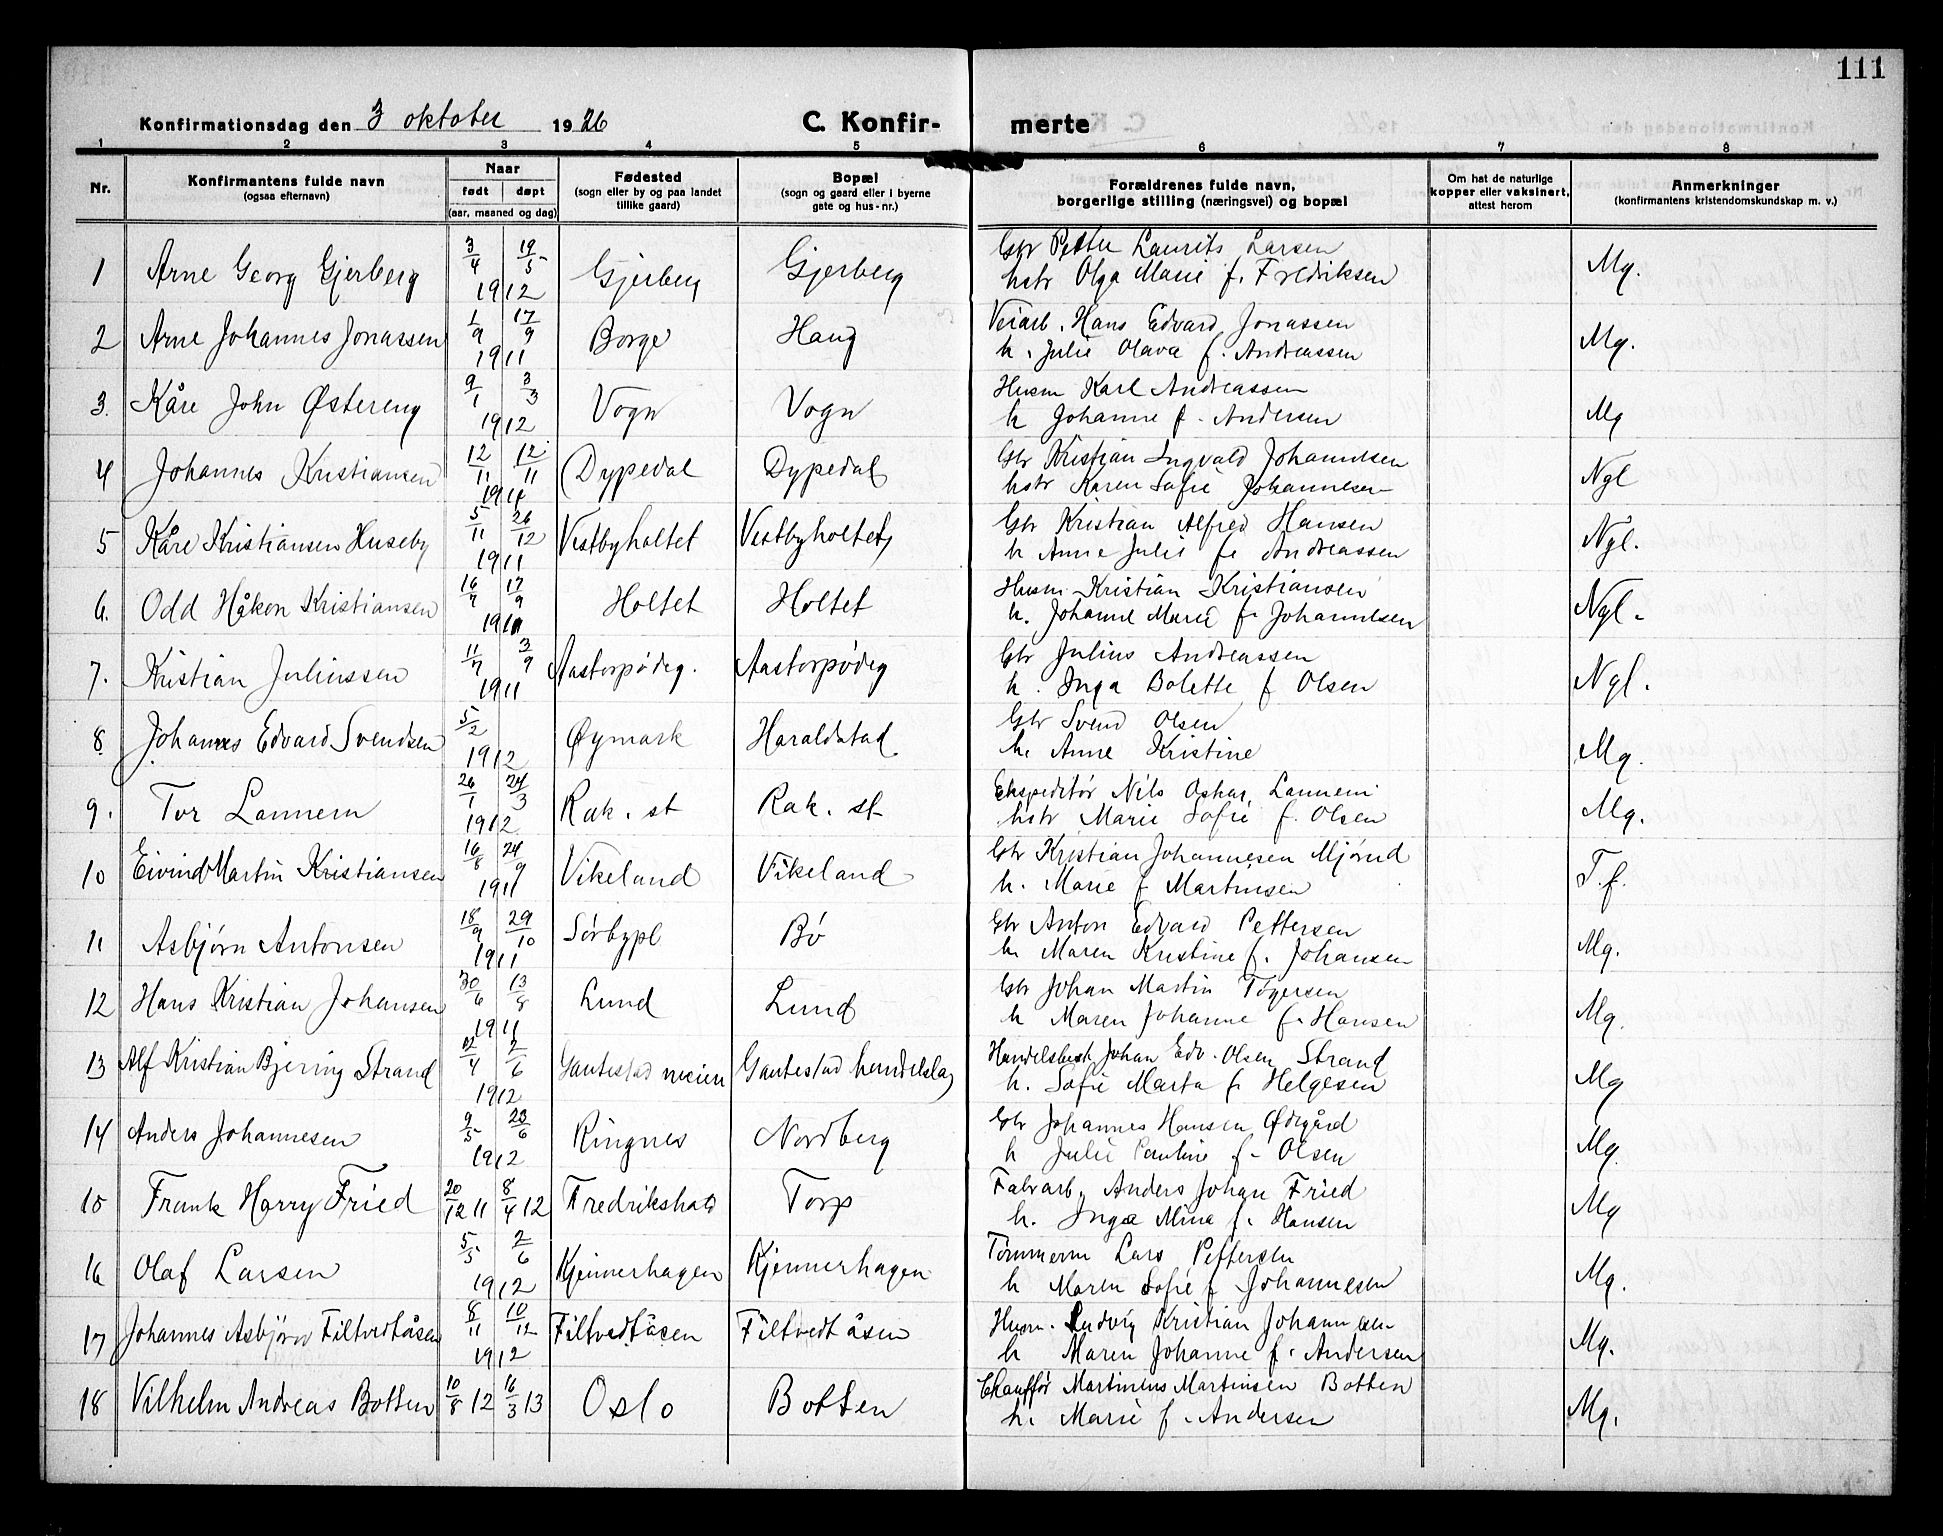 111
Konfirmationsdag den 3 oktober 1926 C. Konfir- merte
1 2 3 4 5 6 7 8
Nr. Konfirmantens fulde navn (ogsaa efternavn) Naar født døpt (aar, maaned og dag) Fødested (sogn eller by og paa landet tillike gaard) Bopæl (sogn og gaard eller i byerne gate og hus-nr.) Forældrenes fulde navn, borgerlige stilling (næringsvei) og bopæl Om hat de naturlige kopper eller vaksinert, attest herom Anmerkninger (konfirmantens kristendomskundskap m. v.)
1 Arne Georg Gjerberg 3/4 19/5 1912 Gjerberg Gjerberg Gbr Petter Laurits Larsen
hstr Olga Marie f. Fredriksen Mg.
2 Arne Johannes Jonassen 1/9 17/9 1911 Borge Haug Veiarb. Hans Edvard Jonassen
h. Julie Olava f. Andreassen Mg.
3. Kåre John Østereng 9/1 3/3 1912 Vogn Vogn Husm Karl Andreassen
h Johanne f. Andersen Mg
4 Johannes Kristiansen 12/11 12/11 1911 Dypedal Dypedal Gbr Kristian Ingvald Johannesen
hstr Karen Sofie Johannesen Ngl
5 Kåre Kristiansen Huseby 5/11 26/12 1911 Vestbyholtet Vestbyholtet Gbr Kristian Alfred Hansen
h Anne Julie f. Andreassen Ngl.
6. Odd Håkon Kristiansen 16/7 17/9 1911 Holtet Holtet Husm. Kristian Kristiansen
h. Johanne Marie f. Johannesen Ngl.
7. Kristian Juliussen 11/7 3/9 1911 Aastorpødeg. Aastorpødeg Gbr Julius Andreassen
h. Inga Bolette f Olsen Ngl.
8. Johannes Edvard Svendsen 5/2 1912 Øymark Haraldstad Gbr Svend Olsen
h. Anne Kristine Mg.
9. Tor Lannem 26/1 24/3 1912 Rak. st Rak. st Ekspeditør Nils Oskar Lannem
hstr Marie Sofie f. Olsen Mg.
10 Eivind Martin Kristiansen 16/8 24/9 1911 Vikeland Vikeland Gbr Kristian Johannesen Mjørud
h. Marie f Martinsen T.f.
11 Asbjørn Antonsen 18/9 29/10 1911 Sørbypl Bø Gbr Anton Edvard Pettersen
h. Maren Kristine f. Johansen Mg.
12 Hans Kristian Johansen 30/6 13/8 1911 Lund Lund Gbr Johan Martin Tøgersen
h Maren Johanne f. Hansen Mg.
13 Alf Kristian Bjering Strand 4 2/6 1912 Gautestad meieri Gautestad handelslag Handelsbest. Johan Edv. Olsen Strand
h. Sofie Marta f Helgesen Mg
14 Anders Johannesen 9/5 23/6 1912 Ringnes Nordberg Gbr Johannes Hansen Ødegård
h Julie Pauline f. Olsen Mg.
15 Frank Harry Fried 20/12 11 8/4 12 Fredrikshald Torp Fabrarb. Anders Johan Fried
h. Inga Mina f. Hansen Mg
16 Olaf Larsen 5/5 2/6 1912 Kjennerhagen Kjennerhagen Tømmerm Lars Pettersen
h Maren Sofie f Johannesen Mg.
17 Johannes Asbjørn Filtvedtåsen 8/11 10/12 1912 Filtvedtåsen Filtvedtåsen Husm. Ludvig Kristian Johannesen
h Maren Johanne f. Andersen Mg.
18 Vilhelm Andreas Botten 10/8 12 16/3 13 Oslo Botten Chauffør Martinius Martinsen Botten
h. Marie f. Andersen Mg.